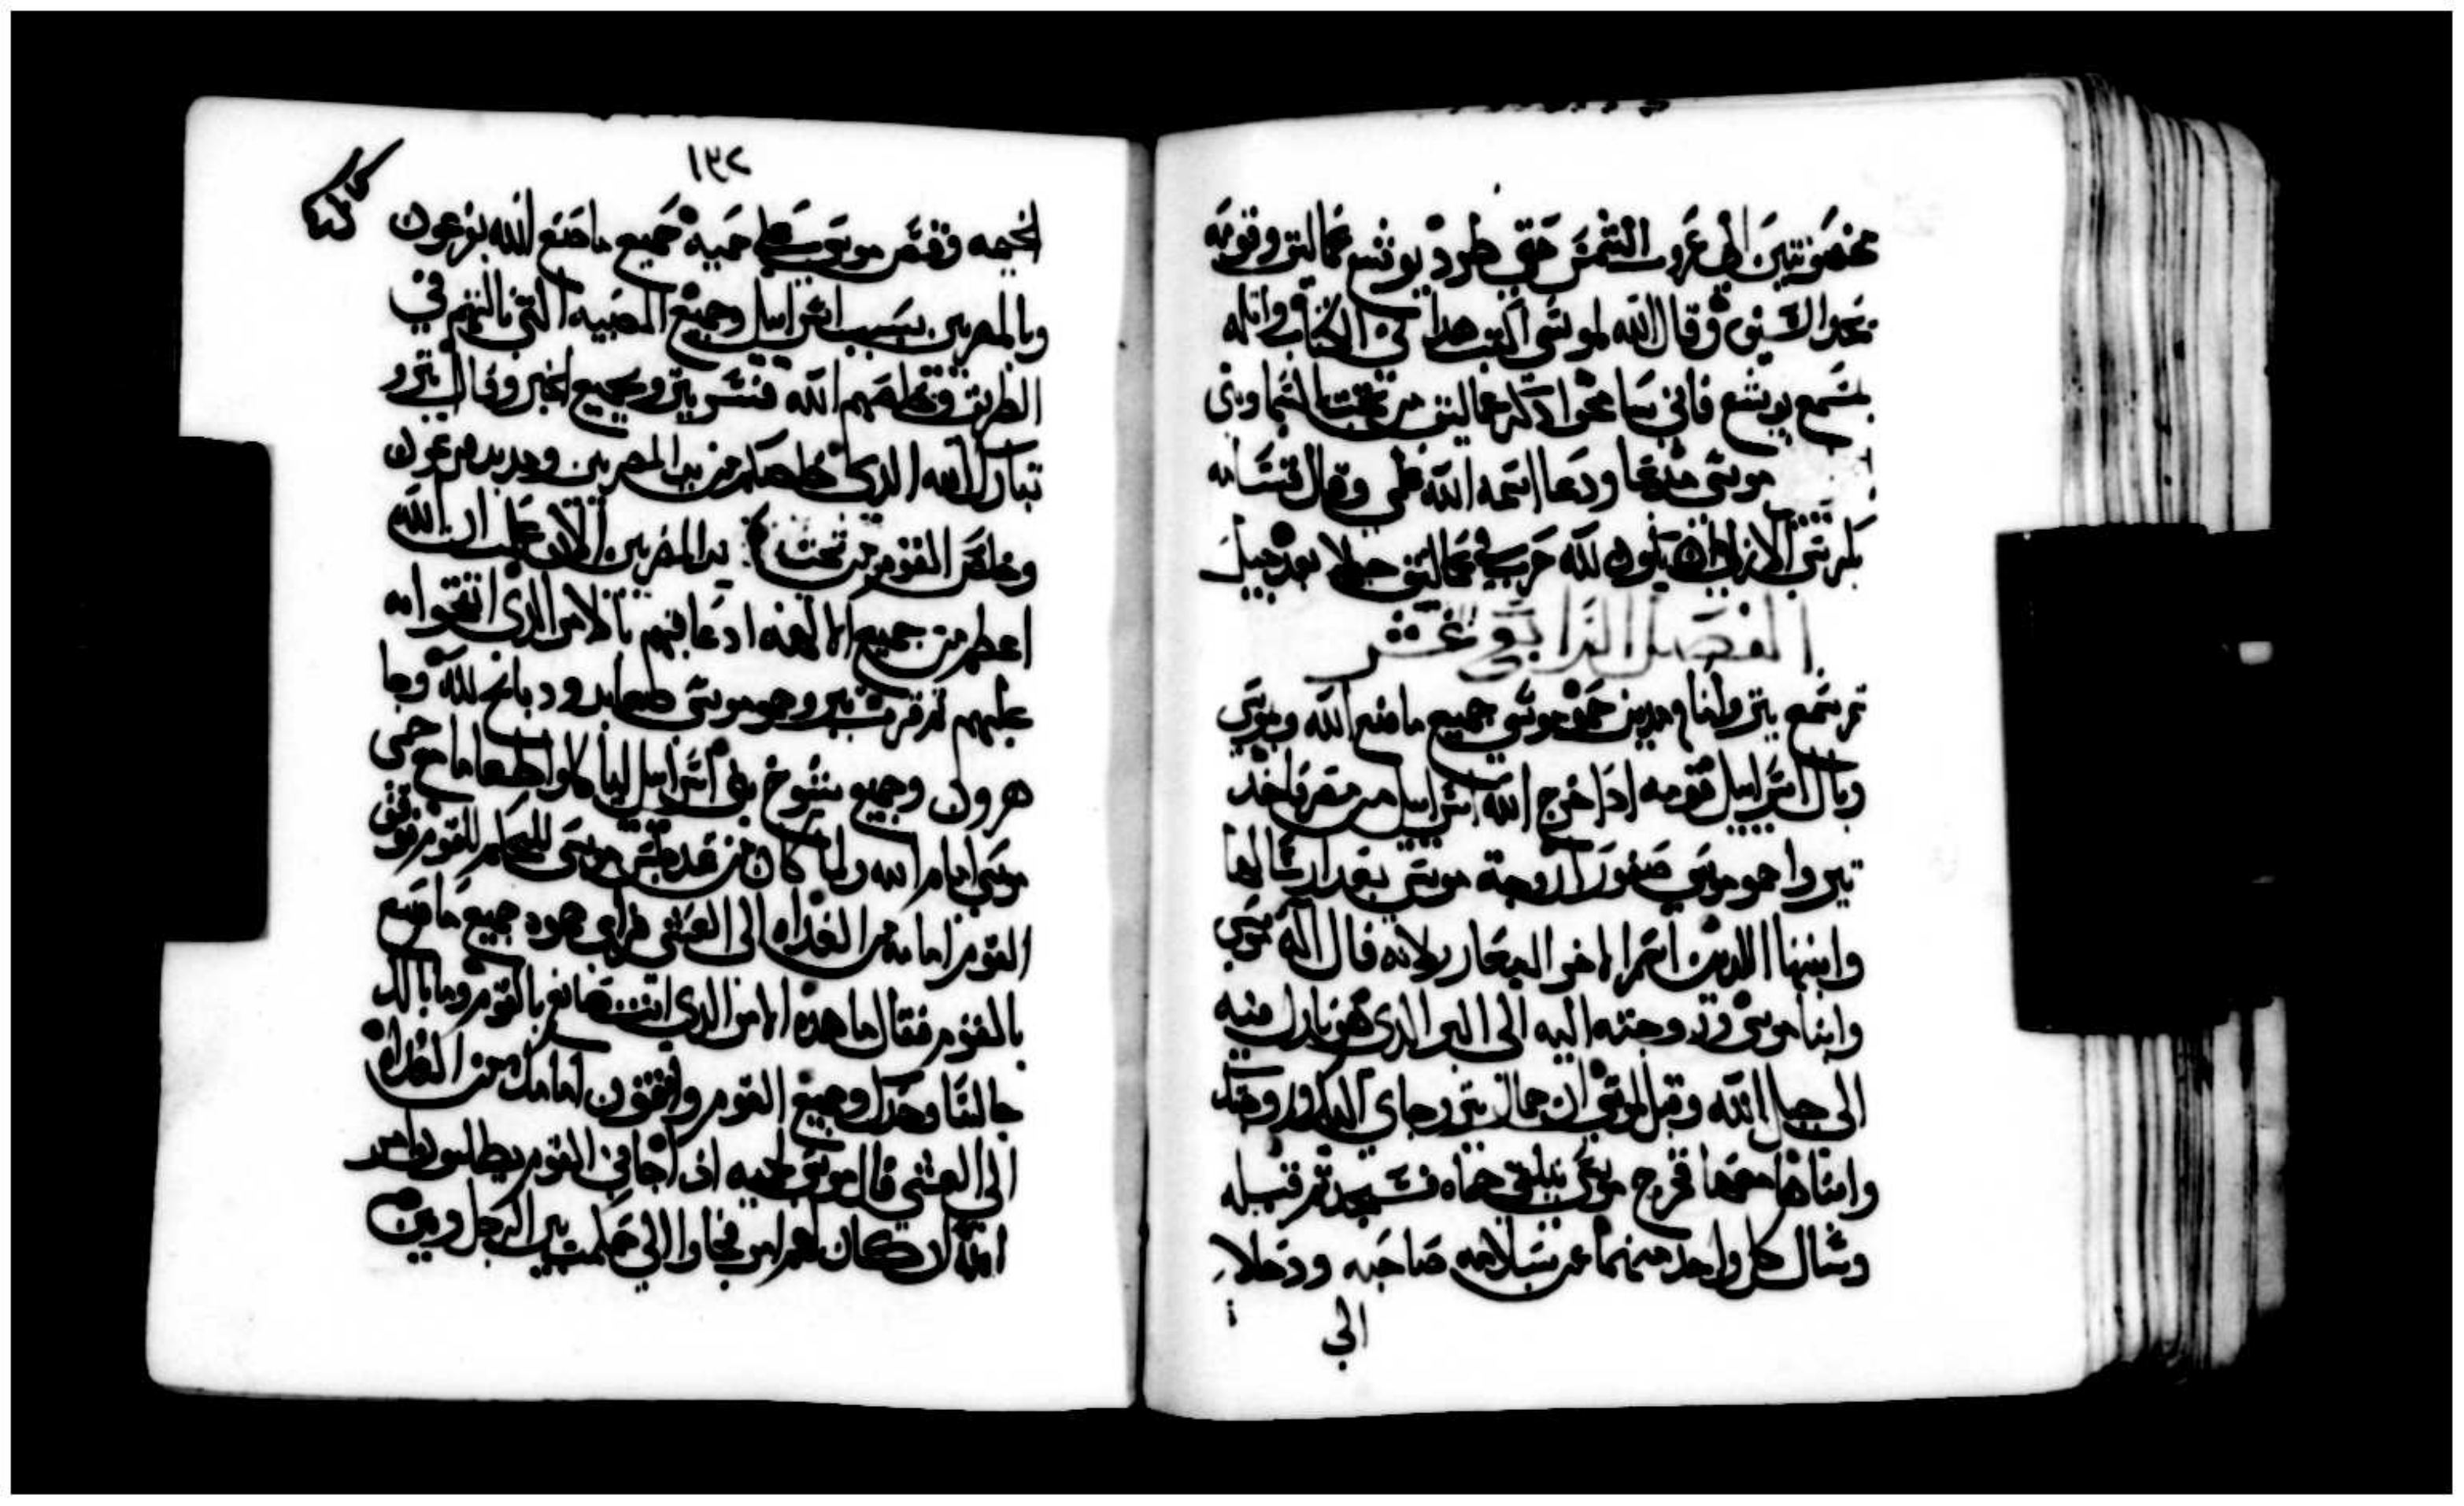 منصوبتين الي غروب الشمس حتي طرد يوشع عماليق وقومه
بحد السيف وقال الله لموسي اكتب هدا في الكتاب واتله
بمسمع يوشع فاني سامحوا دكر عماليق من تحت السما وبني
موسي مدبحا ودعا اسمه الله علمي وقال قسامه
بكرسي الازلي ان يكون لله حرب في عماليق جيلا بعد جيل
الفصل الرابع عشر
تم سمع يترو امام مدين حمو موسي جميع ما صنع الله بموسي
وبال اسراييل قومه اد اخرج الله اسراييل من مصر فاخد
يترو حمو موسي صفورا زوجة موسي بعد ارسالها
وابنيها اللدين اسم الاخر اليعازر لانه قال اله موسي
وابنا موسي وزوجته اليه الي البر الدي هو نازل فيه
الي جبل الله وقيل لموسي ان حماك يترو جاي اليك وزوجتك
وابناها معها فخرج موسي يلتقي حماه فسجد تم قبله
وسال كل واحد منهما عن سلامه صاحبه ودخلا
الي
١٣٢
الخيمه وقص موسي علي حميه جميع ما صنع الله بفرعون
وبالمصريين بسبب اسراييل وجميع المصيبه التي نالتهم في
الطريق وخلصهم الله فسر يترو بجميع الخير وقال يترو
تبارك الله الدي خلصكم من يد المصريين ومن يد فرعون
وخلص القوم من تحت يد المصريين الان علمت ان الله
اعظم من جميع الالهه اد عاقبهم بالامر الدي اتقحوا به
عليهم تم قرب يترو حمو موسي صعايد ودبايح لله وجا
هرون وجميع شيوخ بني اسراييل لياكلوا طعاما مع حمي
موسي امام الله ولما كان من غد جلس موسي ليحكم للقوم فوقف
القوم امامه من الغداه الي العشي فراي حموه جميع ما صنع
بالقوم فقال ما هده الامر الدي انت صانع بالقوم وما بالك
جالسا وحدك وجميع القوم واقفون امامك من الغداه
الي العشي قال موسي لحميه اد اجاني القوم يطلبون امر
الله ان كان لهم امر فجاوا الي حكمت بين الرجل وبين